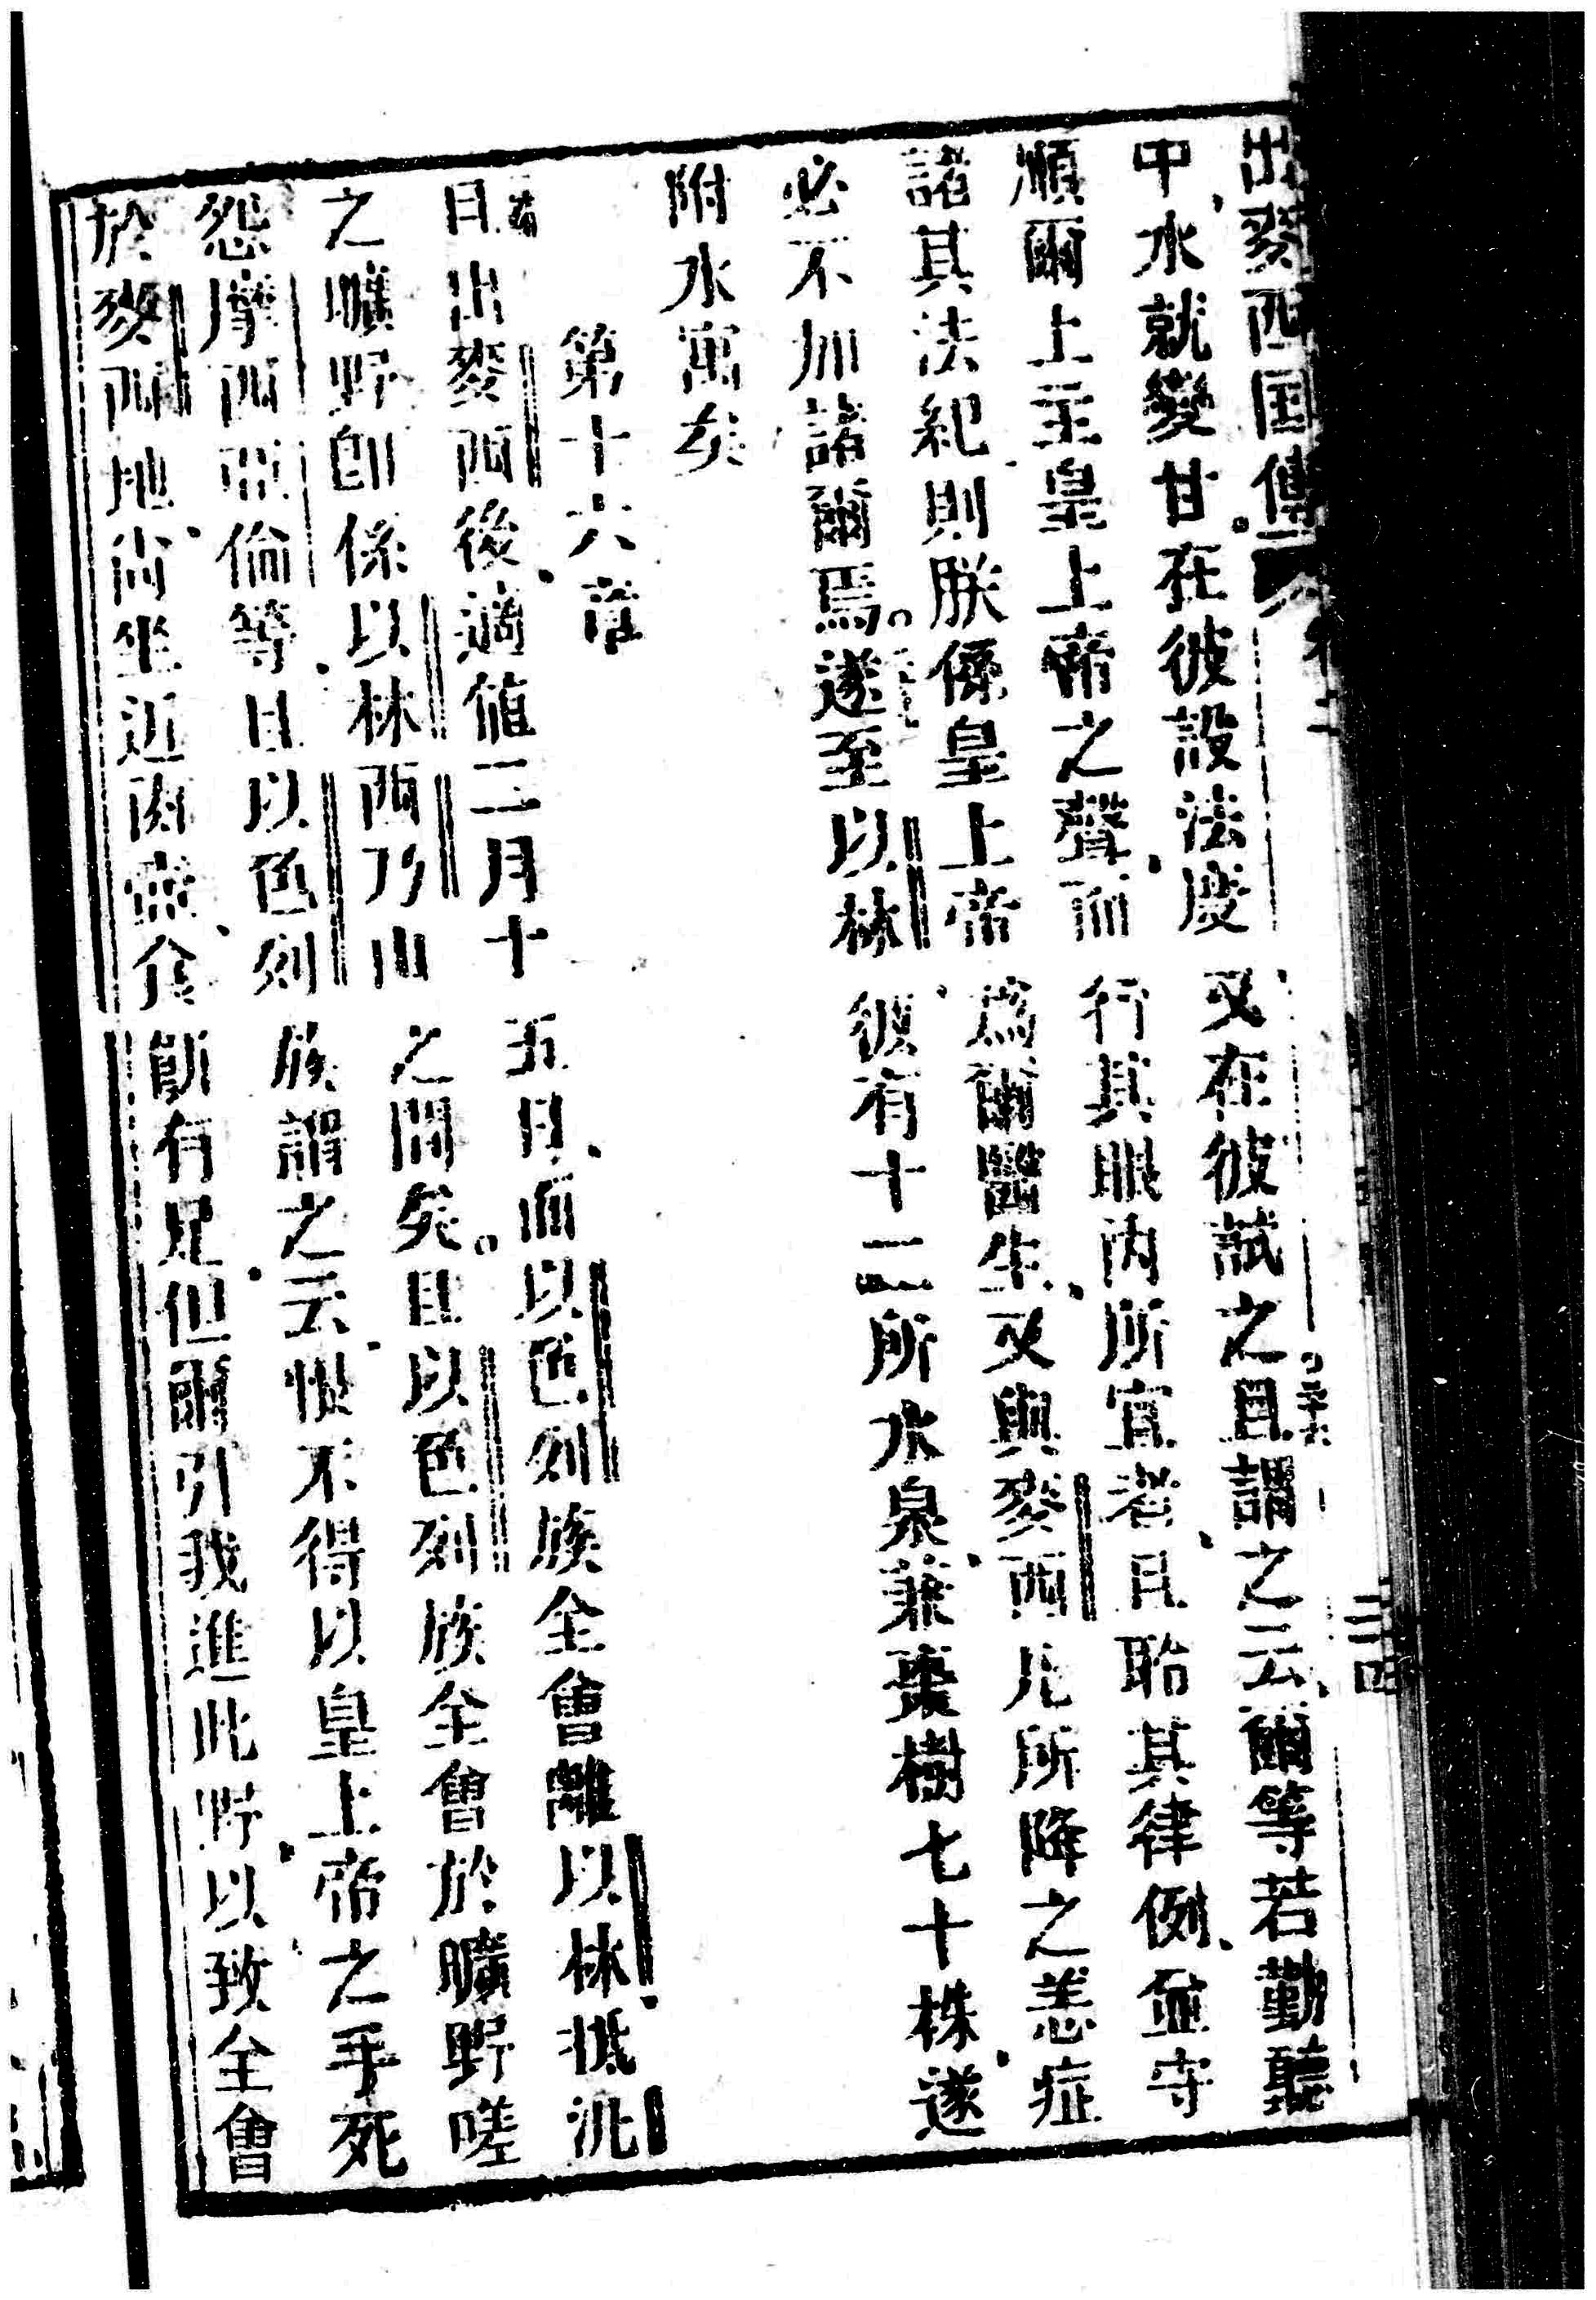 出麥西國傳 卷二 三四
中、水就變甘。在彼設法度、又在彼試之、且謂之云、爾等若勤聽
順爾上主皇上帝之聲、而行其眼內所宜者、且聆其律例、並守
諸其法紀、則朕係皇上帝、爲爾醫生、又與麥西凡所降之恙症
必不加諸爾焉。遂至以林、彼有十二所水泉、兼棗樹七十株、遂
附水寓矣
第十六章
且出麥西後、適値二月十五日、而以色列族全會離以林、抵汎
之曠野、卽係以林西乃山之間矣。且以色列族全會於曠野嗟
怨摩西亞倫等、且以色列族謂之云、恨不得以皇上帝之手死
於麥西地、尚坐近肉甞、食餅有足、但爾引我進此野、以致全會